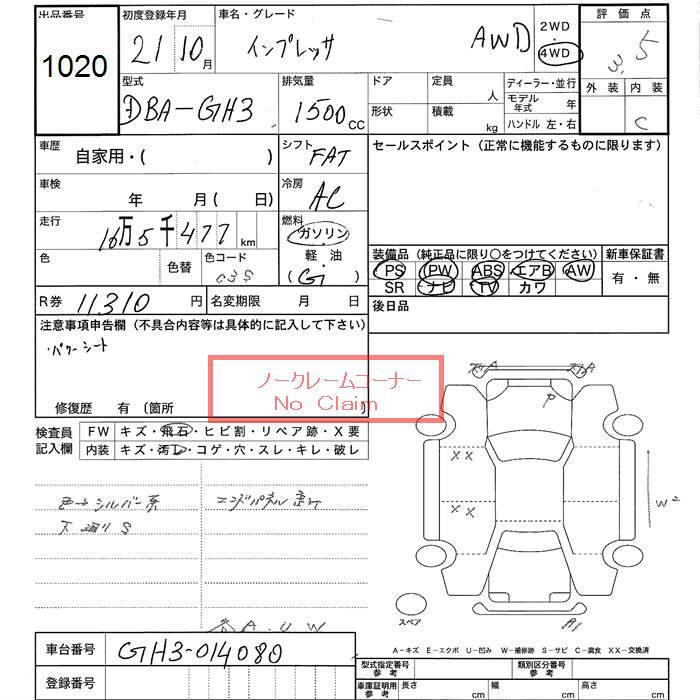 出品番号 初度登録年月 車名・グレード 2WD・4WD 評価点
1020 21 10月 インプレッサ AWD 5
W
型式 排気量 ドア 定員 人 ディーラー・並行 外装 内装
DBA-GH3 1500cc 形状 積載 kg モデル年式 年 C
ハンドル 左・右
車歴 自家用・( ) シフト FAT セールスポイント (正常に機能するものに限ります)
車検 年 月 ( 日) 冷房 AC
走行 10万5千477km 燃料 ガソリン
軽・油
(Gi)
色 色替 色コード 装備品 (純正品に限り〇をつけてください) 新車保証書
C3S PS PW ABS エアB AW 有・無
SR ナビ TV カワ
R券 11,310円 名変期限 月 日 後日品
注意事項申告欄 (不具合内容等は具体的に記入して下さい)
・パワーシート
ノークレームコーナー
No Claim
修復歴 有 (箇所 )
検査員記入欄 FW キズ・飛石・ヒビ割・リペア跡・X要
内装 キズ・汚レ・コゲ・穴・スレ・キレ・破レ
P
XX
XX
W2
色→シルバー系 エンドパネル
下廻りS
A.U.W
A1
スペア
A-キズ E-エクボ U-凹み W-補修跡 S-サビ C-腐食 XX-交換済
車台番号 GH3-014080
登録番号
型式指定番号 類別区分番号
車庫証明用参考 長さ cm 幅 cm 高さ cm